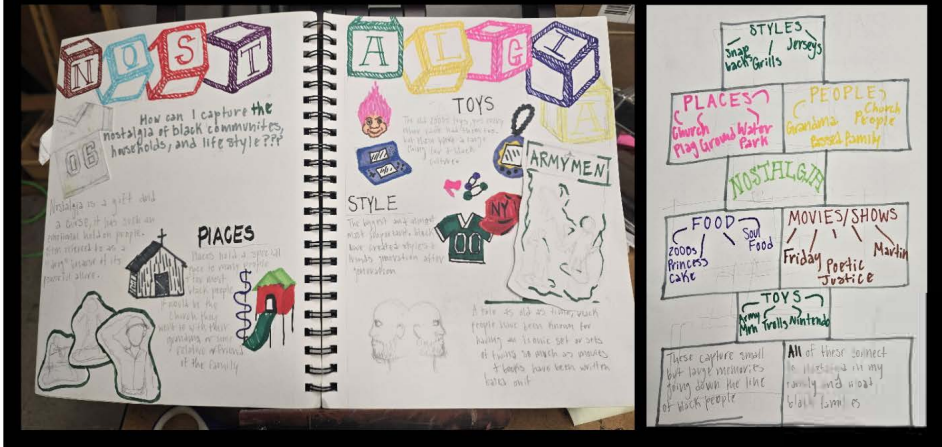 NOST
ALGI
A
06
How can I capture the
nostalgia of black communites,
households, and life style???
Nostalgia is a gift and
a curse, it has such an
emotional hold on people.
PlACES
Places hold a special
black people
it would be the
church they
went to with their
grandma or some
relative or friend
of the family
TOYS
ARMYMEN
NY
00
STYLE
The biggest and
have created styles and
trends generation after
generation
A tale as old as time, black
people have been known for
having an iconic set or sets
of twins so much as movies
& books have been written
bales on it
STYLES
Snap
back
Grills
Jerseys
PLACES
Church
Play Ground
Water
Park
PEOPLE
Grandma
Church
People
Based Family
NOSTALGIA
FOOD
2000s
Princess
Cake
Soul
Food
MOVIES/SHOWS
Friday
Poetic
Justice
Martin
TOYS
Army
Men
Trolls
Nintendo
These capture small
but large memories
going down the line
of black people
All of these connect
to nostalgia in my
family and
black families